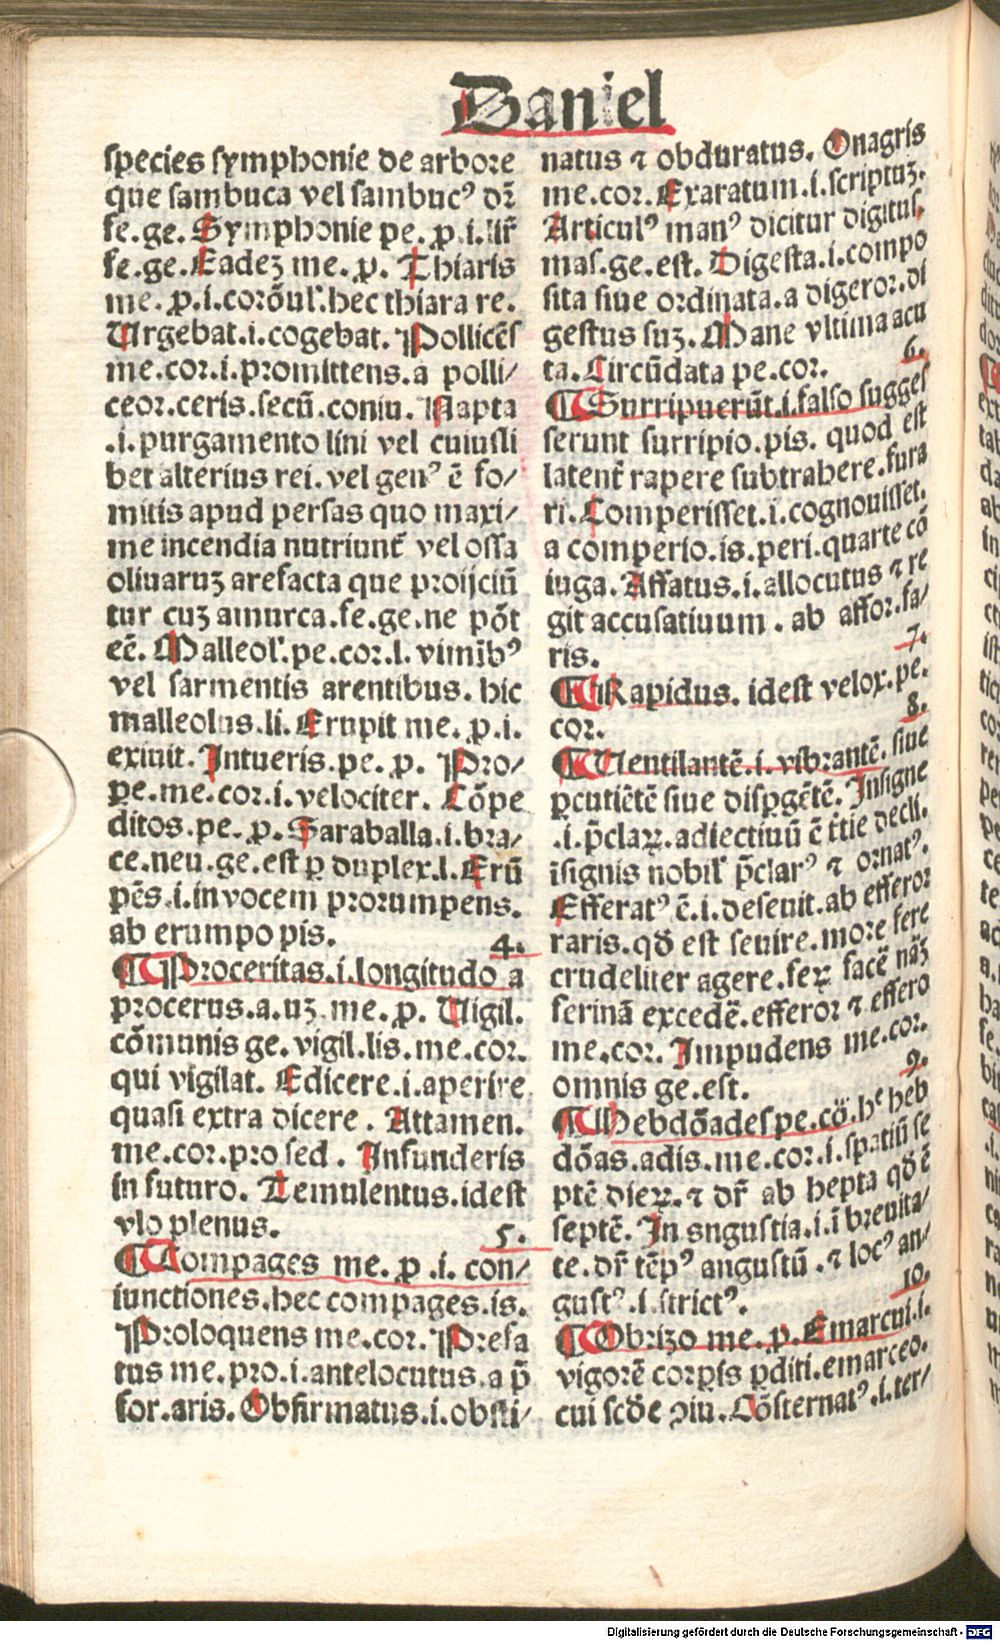 Daniel
species symphonie de arbore
que sambuca vel sambucꝰ dr̄
fe.ge. Symphonie pe. ꝓ.i.lir̄
fe.ge. Eadeꝫ me. ꝓ. Thiaris
me. ꝓ.i.corōul'.hec thiara re.
Urgebat.i.cogebat. Pollicēs
me.cor.i.promittens.a polli/
ceor.ceris.secū.coniu. Napta
.i.purgamento lini vel cuiusli
bet alterius rei.vel genꝰ ē fo/
mitis apud persas quo maxi/
me incendia nutriunt̄ vel ossa
oliuaruꝫ arefacta que proijciū
tur cuꝫ amurca.fe.ge.ne pōt
eē. Malleol'.pe.cor.l.vimībꝰ
vel sarmentis arentibus. hic
malleolus.li. Erupit me. ꝓ.i.
exiuit. Intueris.pe. ꝓ. Pro/
pe.me.cor.i.velociter. Cōpe
ditos.pe. ꝓ. Saraballa.i.bra/
ce.neu.ge.est ꝑ duplex.l. Erū
pēs.i.in vocem prorumpens.
ab erumpo pis. 4.
¶ Proceritas.i.longitudo a
procerus.a.uꝫ me. ꝓ. Uigil.
cōmunis ge.vigil.lis.me.cor.
qui vigilat. Edicere.i.aperire
quasi extra dicere. Attamen.
me.cor.pro sed. Infunderis
in futuro. Temulentus.idest
vīo plenus. 5.
¶ Compages me. ꝓ.i. con/
iunctiones.hec compages.is.
Proloquens me.cor. Prefa
tus me.pro.i.antelocutus.a p̄
for.aris. Obfirmatus.i.obsti/
natus ⁊ obduratus. Onagris
me.cor. Exaratum.i.scriptuꝫ.
Articulꝰ manꝰ dicitur digitus.
mas.ge.est. Digesta.i.compo
sita siue ordinata.a digeror.di
gestus suꝫ. Mane vltima acu
ta. Circūdata pe.cor. 6.
¶ Surripuerūt.i.falso sugges
serunt surripio.pis. quod est
latent̄ rapere subtrahere.fura
ri. Comperisset.i.cognouisset.
a comperio.is.peri.quarte cō
iuga. Affatus.i.allocutus ⁊ re
git accusatiuum. ab affor.fa/
ris. 7.
¶ Rapidus. idest velox.pe.
cor. 8.
¶ Uentilantē.i.vibrantē. siue
ꝑcutiētē siue disꝑgētē. Insigne
.i.p̄claꝝ.adiectiuū ē t̄tie decli.
īsignis nobil' p̄clarꝰ ⁊ ornatꝰ.
Efferatꝰ ē.i.deseuit.ab efferor
raris.qď est seuire.more fere
crudeliter agere.feꝝ facē nāꝫ
ferinā excedē.efferor ⁊ effero
me.cor. Impudens me.cor.
omnis ge.est. 9.
¶ Hebdōades pe.cō. hᵉ heb
dōas.adis.me.cor.i.spatiū se
ptē dieꝝ. ⁊ dr̄ ab hepta qď ē
septē. In angustia.i.ī breuita/
te.dr̄ tēpꝰ angustū. ⁊ locꝰ an/
gustꝰ.i.strictꝰ. 10.
¶ Obrizo me. ꝓ. Emarcui.i.
vigorē corꝑis ꝑditi.emarceo.
cui scďe ꝯiu. Cōsternatꝰ.i.ter/
Digitalisierung gefördert durch die Deutsche Forschungsgemeinschaft - DFG